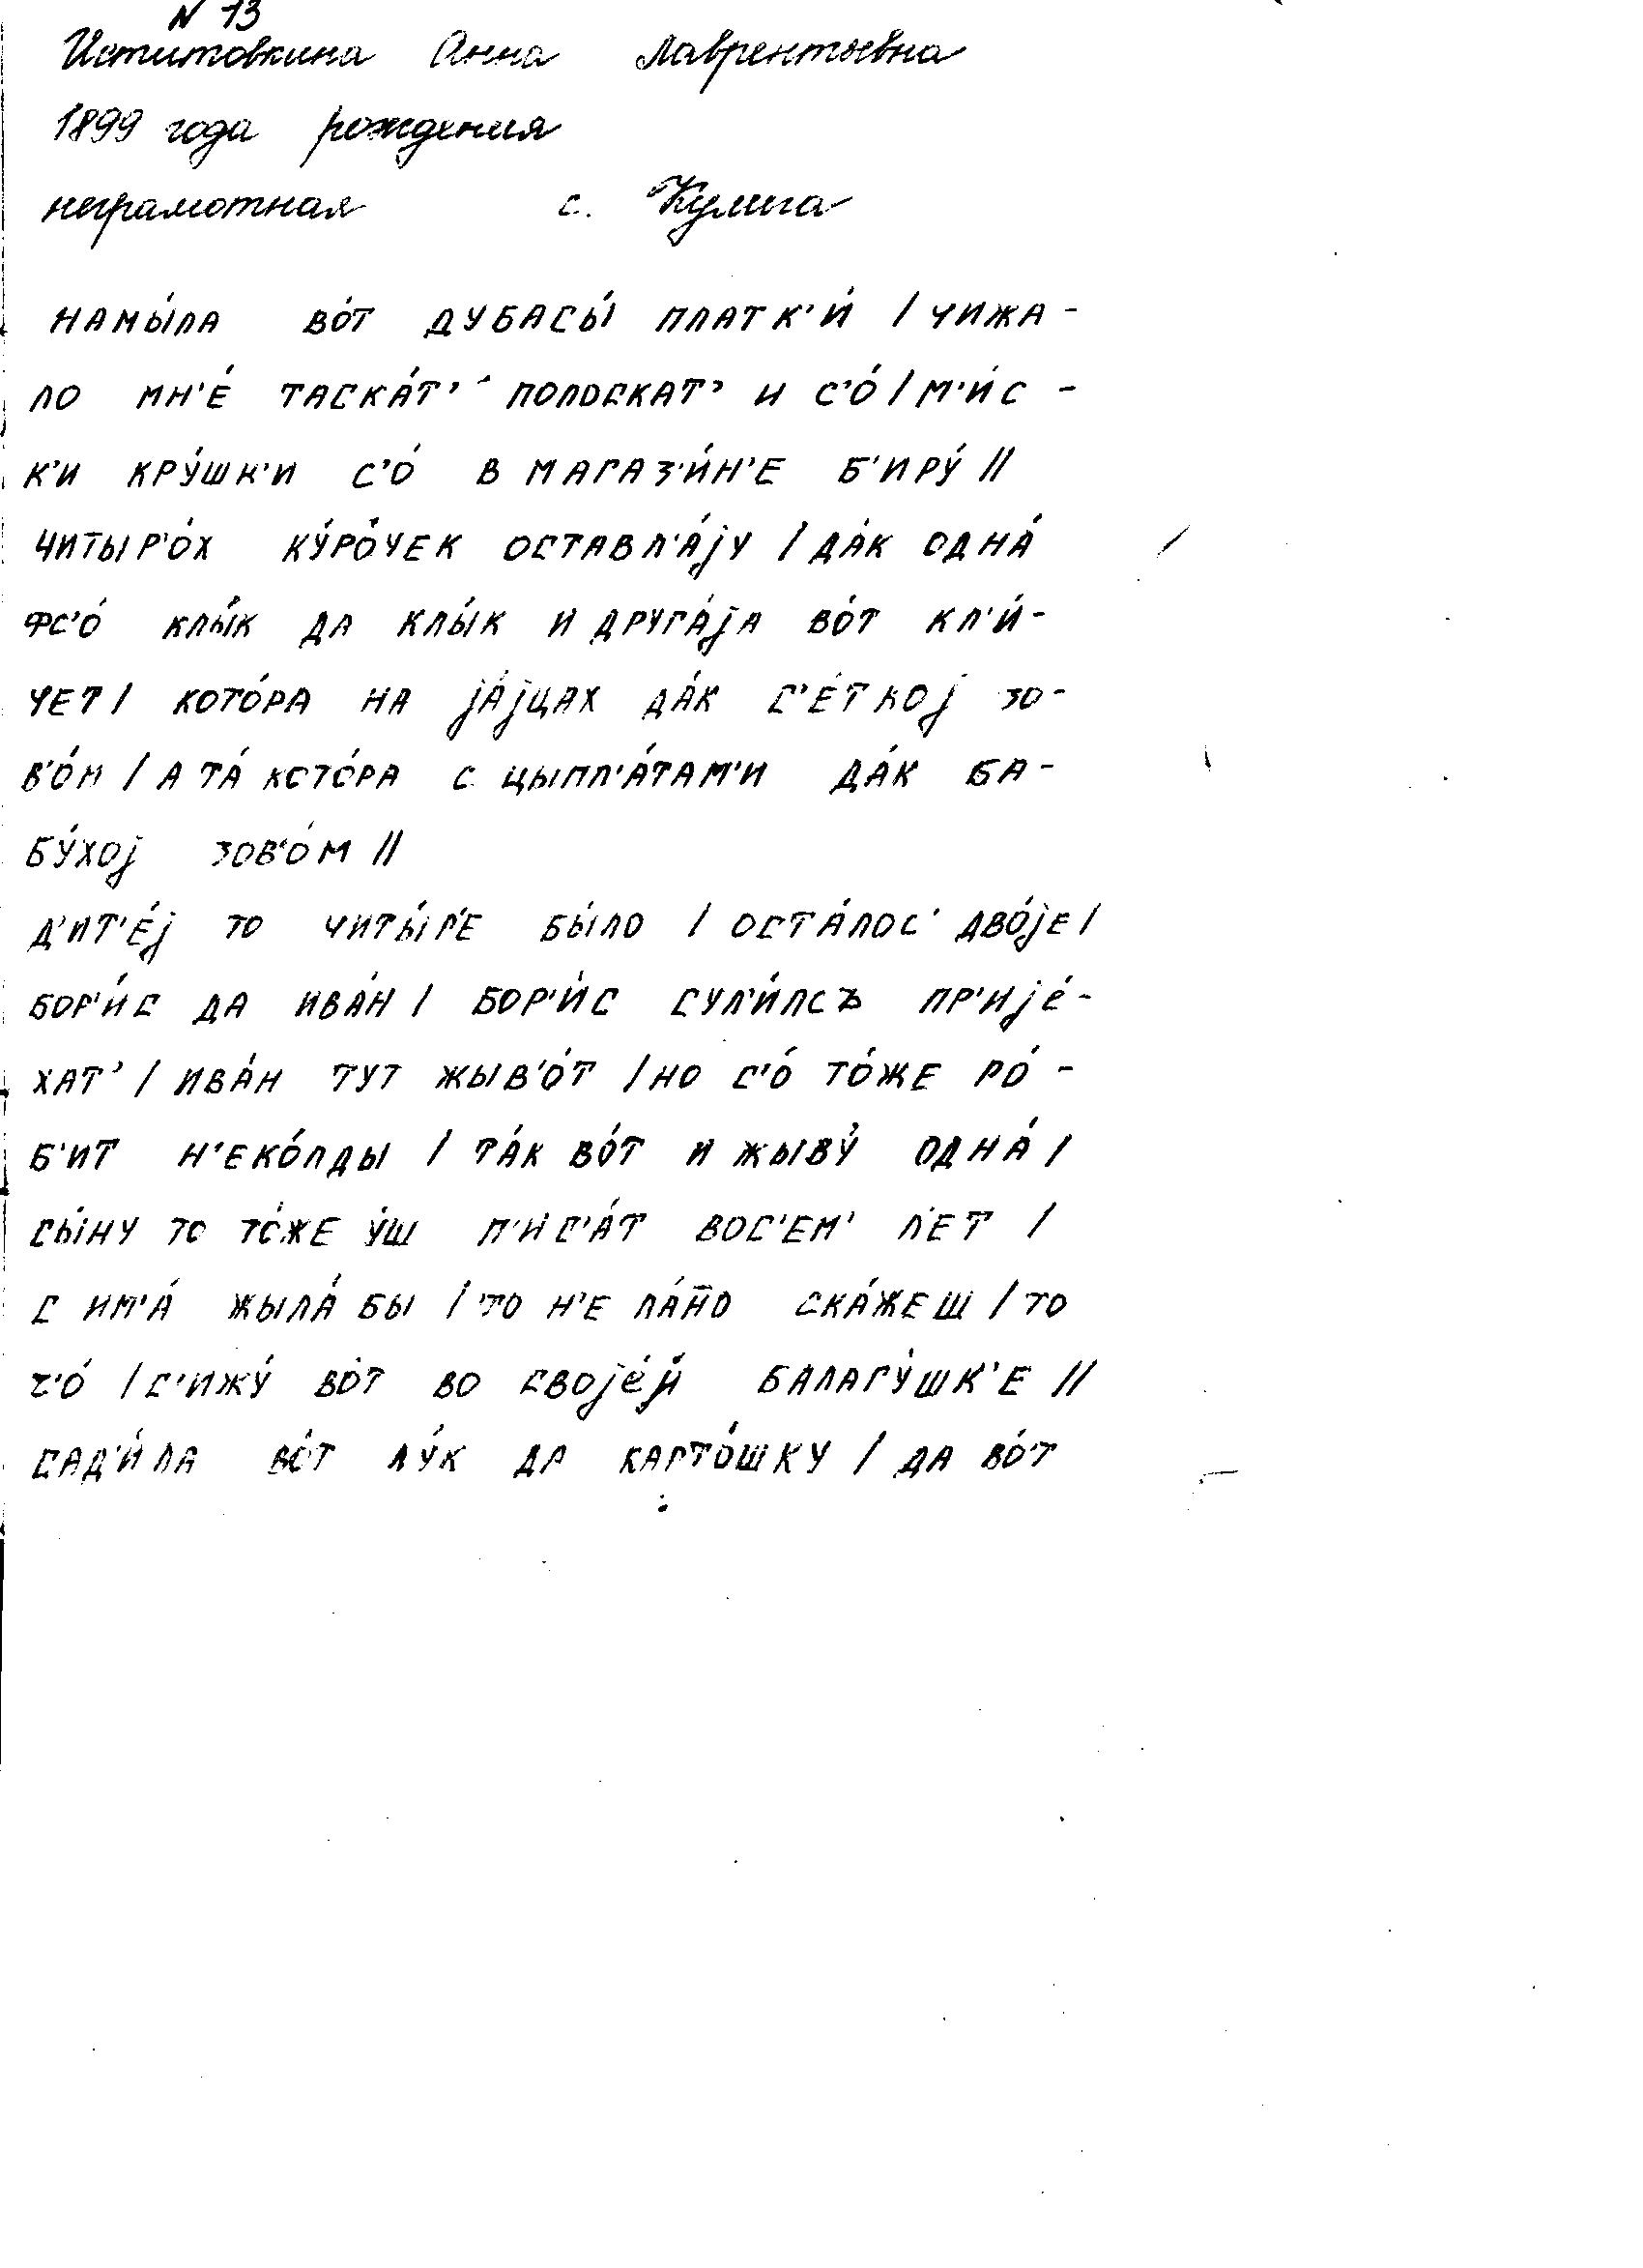 N 13
Иститовкина Анна Лаврентьевна
1899 года рождения
неграмотная с. Кулига
НАМЫ́ЛА ВО́Т ДУБАСЫ́ ПЛАТК'И́ / ЧИЖА-
ЛО МН'Е́ ТАСКА́Т' ПОЛОСКАТ' И С'О́ / М'И́С-
К'И КРУ́ШК'И С'О́ В МАГАЗ'И́Н'Е Б'ИРУ́ //
ЧИТЫР'О́Х КУ́РО́ЧЕК ОСТАВЛ'А́JУ / ДА́К ОДНА́
ФС'О́ КЛЫ́К ДА КЛЫ́К И ДРУГА́JА ВО́Т КЛ'И́-
ЧЕТ / КОТО́РА НА JА́JЦАХ ДА́К С'Е́ТКОJ ЗО-
В'О́М / А ТА́ КОТО́РА С ЦЫПЛ'А́ТАМ'И ДА́К БА-
БУ́ХОJ ЗОВ'О́М //
Д'ИТ'Е́J ТО ЧИТЫ́Р'Е БЫ́ЛО / ОСТА́ЛОС' ДВО́JЕ /
БОР'И́С ДА ИВА́Н / БОР'И́С СУЛ'И́ЛСЪ ПР'ИJЕ́-
ХАТ' / ИВА́Н ТУТ ЖЫВ'О́Т / НО С'О́ ТО́ЖЕ РО́-
Б'ИТ Н'ЕКО́ЛДЫ / ТА́К ВО́Т И ЖЫВУ́ ОДНА́ /
СЫ́НУ ТО ТО́ЖЕ У́Ш П'ИС'А́Т ВОС'ЕМ' Л'ЕТ /
С ИМ'А́ ЖЫЛА́ БЫ / ТО Н'Е ЛА́Н̄О СКА́ЖЕШ / ТО
Ч'О́ / С'ИЖУ́ ВО́Т ВО СВОJЕ́Й БАЛАГУ́ШК'Е //
САД'И́ЛА ВО́Т ЛУ́К ДА КАРТО́ШКУ / ДА ВО́Т